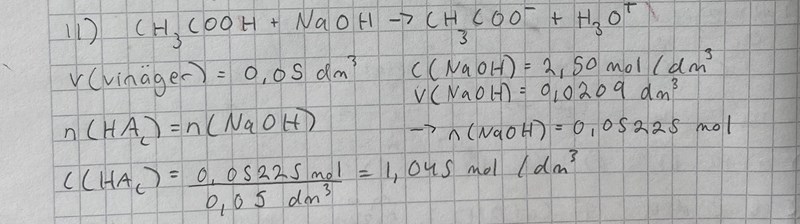 11) CH₃COOH + NaOH → CH₃COO⁻ + H₃O⁺
V(vinäger) = 0,05 dm³ C(NaOH) = 2,50 mol/dm³
V(NaOH) = 0,0209 dm³
n(HAc) = n(NaOH) → n(NaOH) = 0,05225 mol
C(HAc) = 0,05225 mol / 0,05 dm³ = 1,045 mol/dm³